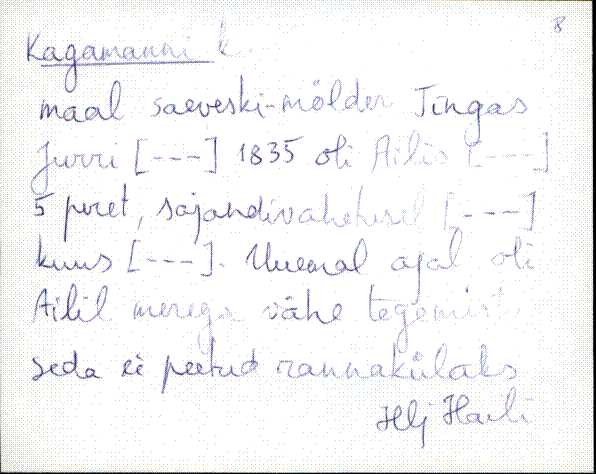 8
Kagamanni k.
maal saeveski-mölder Tingas
Jurri [---] 1835 oli Ailis [---]
5 peret, sajandivahetusel [---]
kuus [---]. Uuemal ajal oli
Ailil merega vähe tegemist,
seda ei peetud rannakülaks